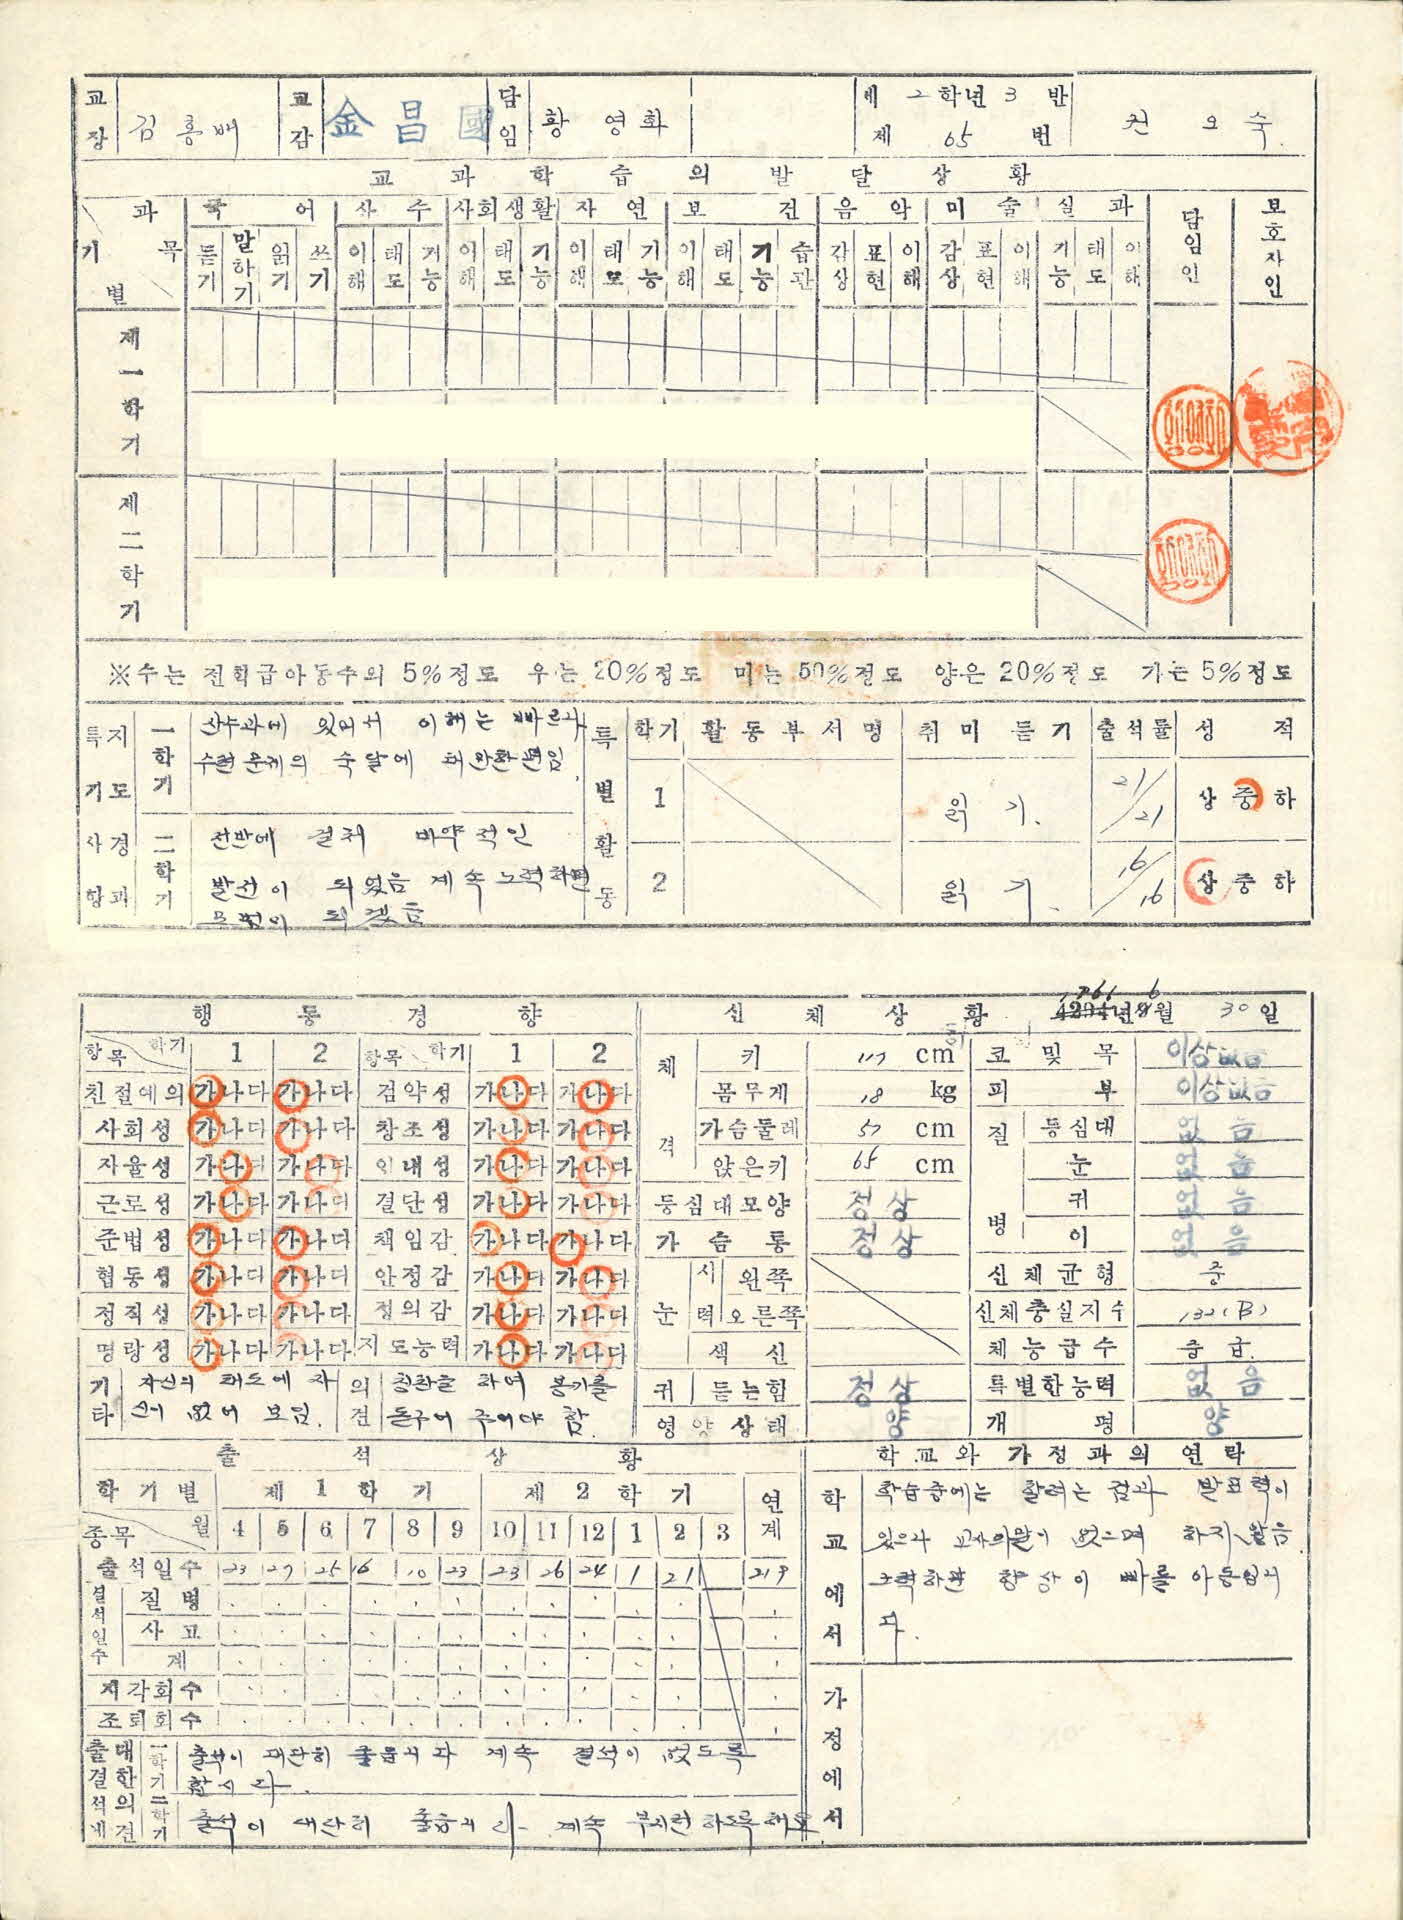 교장 김홍배 교감 金昌國 담임 황영화 제 2 학년 3 반 제 65 번 권오숙
교과학습의 발달상황
과목 기별 국어 산수 사회생활 자연 보건 음악 미술 실과 담임인 보호자인
듣기 말하기 읽기 쓰기 이해 태도 기능 이해 태도 기능 이해 태도 기능 이해 태도 기능 습관 감상 표현 이해 감상 표현 이해 기능 태도 이해
제一학기
제二학기
※수는 전학급아동수의 5%정도 우는 20%정도 미는 50%정도 양은 20%정도 가는 5%정도
특기사항과 지도경
一학기 산수과에 있어서 이해는 빠르나
수련 문제의 숙달에
二학기 전반에 걸쳐 비약적인
발전이 되었음 계속 노력하면
모범이 되겠음
특별활동 학기 활동부서명 취미 듣기 출석률 성적
1 읽기. 21/21 상중하
2 읽기. 16/16 상중하
행동경향
항목 학기 1 2 항목 학기 1 2
친절예의 가나다 가나다 검약성 가나다 가나다
사회성 가나다 가나다 창조성 가나다 가나다
자율성 가나다 가나다 인내성 가나다 가나다
근로성 가나다 가나다 결단성 가나다 가나다
준법성 가나다 가나다 책임감 가나다 가나다
협동성 가나다 가나다 안정감 가나다 가나다
정직성 가나다 가나다 정의감 가나다 가나다
명랑성 가나다 가나다 지도능력 가나다 가나다
기타 자신의 태도에 자
신이 없어 보임.
의견 칭찬을 하여 용기를
돋구어 주어야 함.
신체상황 4294년 1961 6월 30일
체격 키 117 cm 코및목 이상없음
몸무게 18 kg 피부 이상없음
가슴둘레 57 cm 질병 등심대 없음
앉은키 65 cm 눈 없음
등심대모양 정상 귀 없음
가슴통 정상 이 없음
눈 시력 왼쪽 신체균형 중
오른쪽 신체충실지수 132(B)
색신 체능급수 중급.
귀 듣는힘 정상 특별한능력 없음
영양상태 양 개평 양
출석상황
학기별 제1학기 제2학기 연계
종목 월 4 5 6 7 8 9 10 11 12 1 2 3
출석일수 23 27 25 16 10 23 23 26 24 1 21 219
결석일수 질병
사고
계
지각회수
조퇴회수
출결석에 대한의견
一학기 출석이 대단히 좋읍니다 계속 결석이 없도록
합시다.
二학기 출석이 대단히 좋읍니다. 계속 부지런하도록
학교와 가정과의 연락
학교에서 학습중에는 발표력이
있으나 없으며 하지 않음.
노력하면 향상이 빠를 아동입니
다.
가정에서